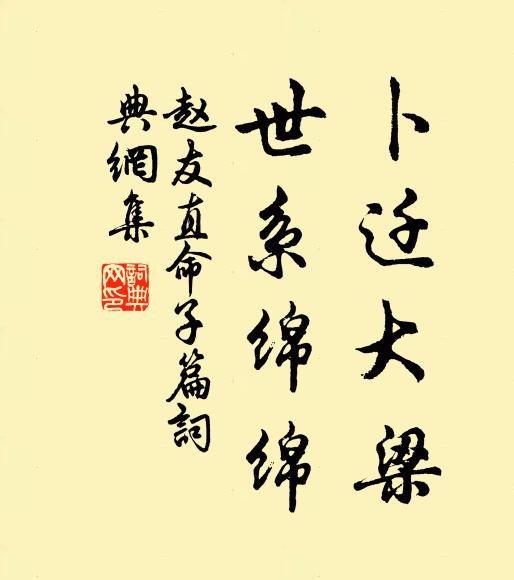 卜迁大梁
世系绵绵
赵友直命子篇詞
典網集
詞典
网印